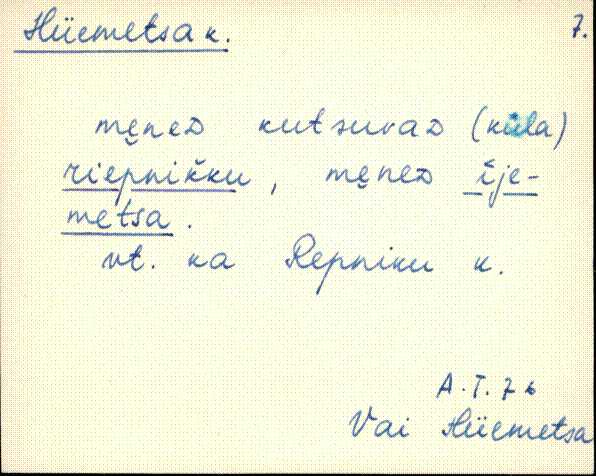 Hiiemetsa k. 7.
mẹneᴅ kutsuvaᴅ (küla)
riepnikku, mẹneᴅ īje-
metsa.
vt. ka Repniku k.
A.T. 76
Vai Hiiemetsa